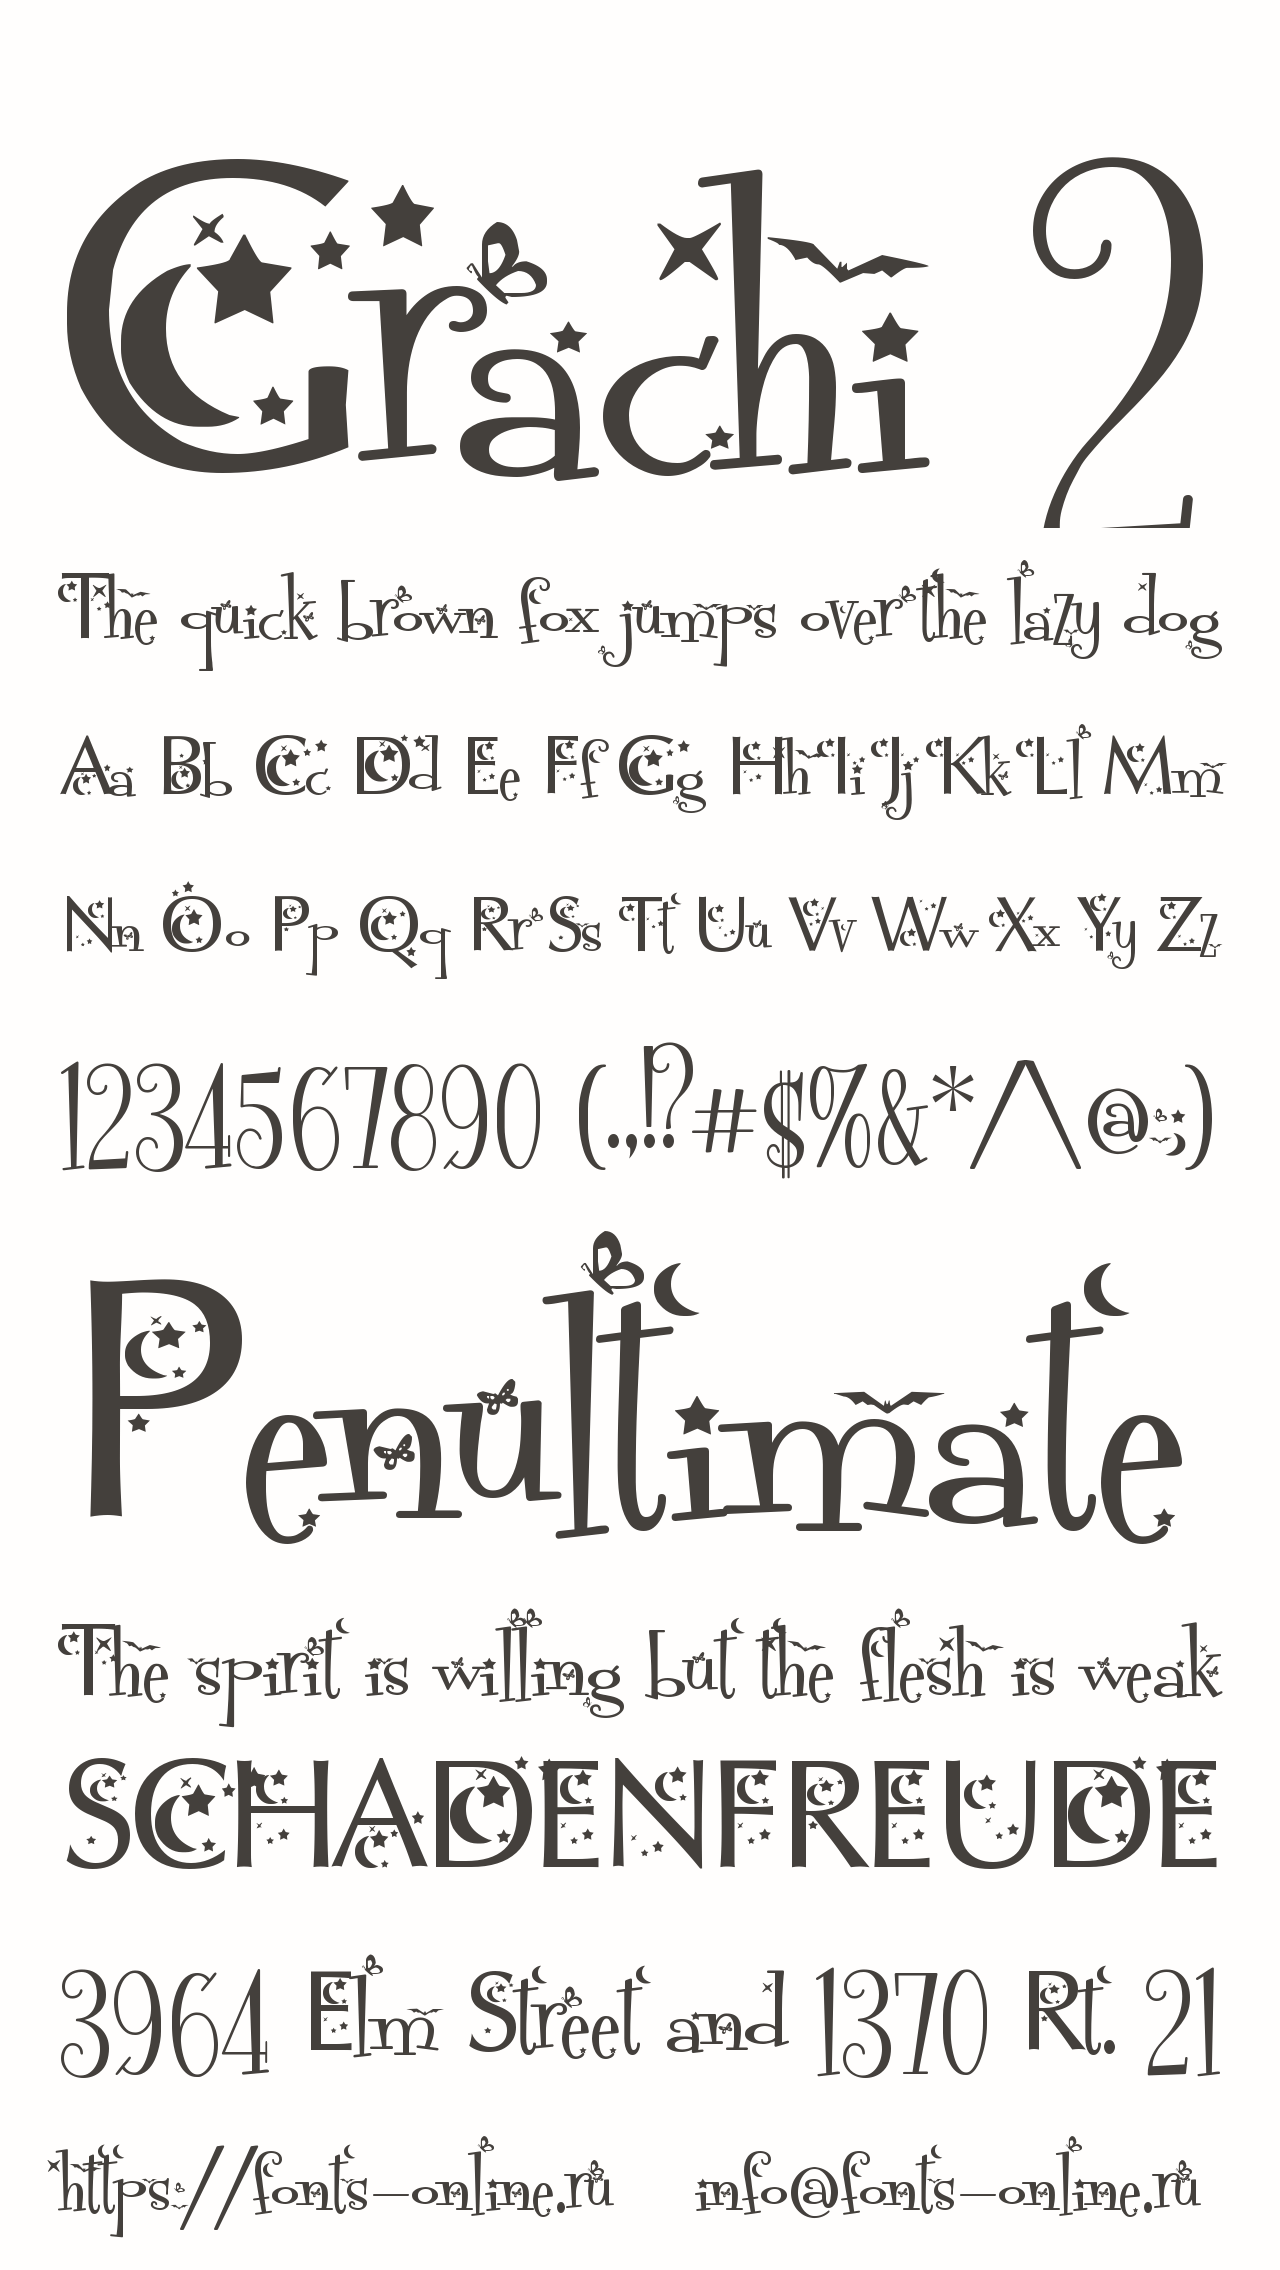 Grachi 2
The quick brown fox jumps over the lazy dog
Aa Bb Cc Dd Ee Ff Gg Hh Ii Jj Kk Ll Mm
Nn Oo Pp Qq Rr Ss Tt Uu Vv Ww Xx Yy Zz
1234567890 (.,!?#$%&*/\@:;)
Penultimate
The spirit is willing but the flesh is weak
SCHADENFREUDE
3964 Elm Street and 1370 Rt. 21
https://fonts-online.ru info@fonts-online.ru